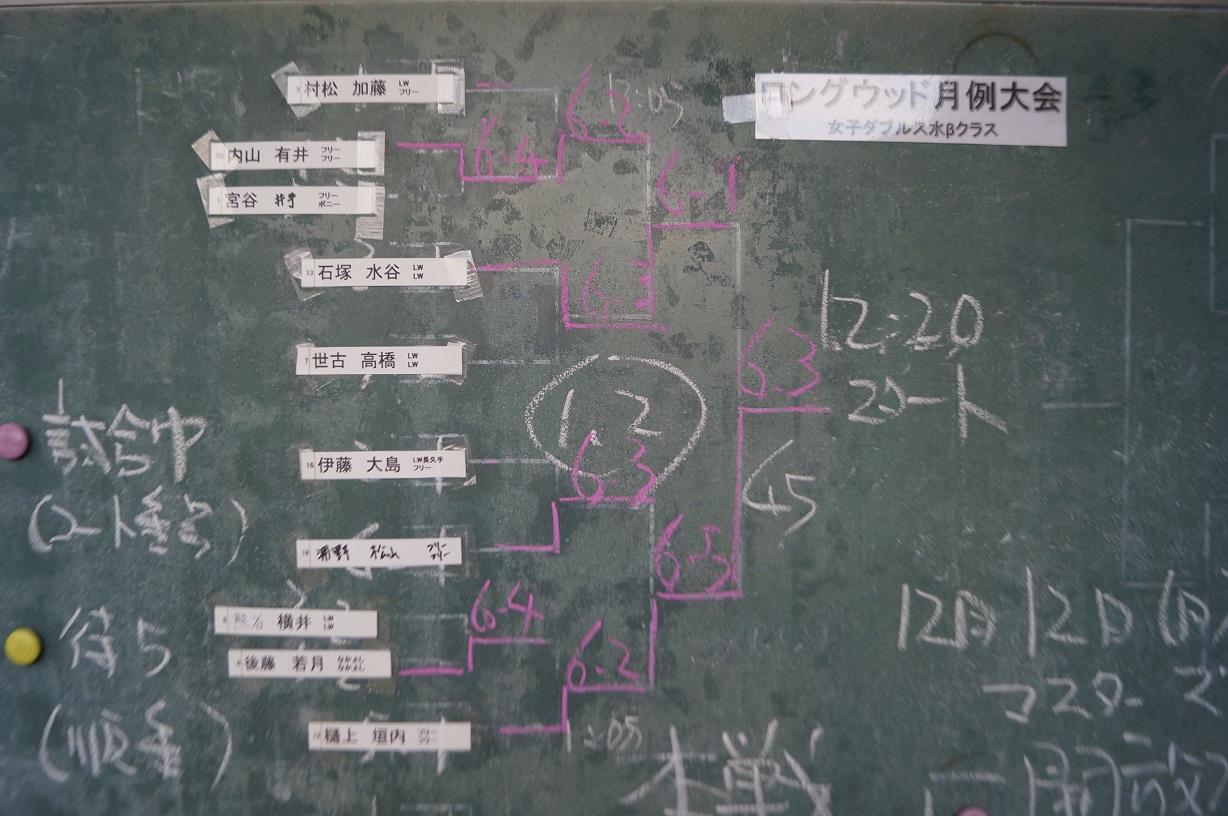 ロングウッド月例大会
女子ダブルス水βクラス
村松 加藤 LW フリー
内山 有井 フリー フリー
宮谷 井手 フリー ポニー
13 石塚 水谷 LW LW
7 世古 高橋 LW LW
伊藤 大島 LW長久手 フリー
横井 LW LW
後藤 若月
樋上 垣内
6-2
6-4
6-1
6-3
6-3
6-3
6-4
6-2
6-3
12:20
スタート
1,2
45
試合中
(コート番号)
待ち
(順番)
1:05
本戦
12月12日
マスターズ